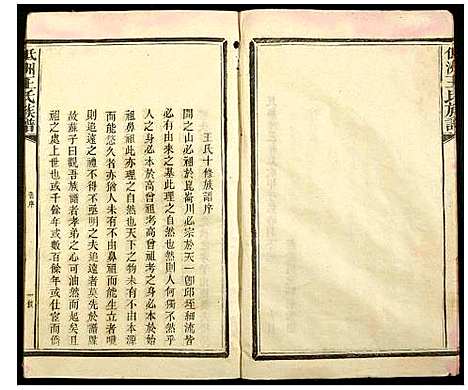 低洲王氏族譜
王氏十修族譜序
聞之山必祖於崑崙川必宗於天一卽邱垤細流皆
必有由來之基此理之自然也然則人何獨不然乎
人之身必本於高曾祖考高曾祖考之身必本於始
祖鼻祖此亦理之自然也天下之物未有不由本源
而能悠久者亦猶人未有不由鼻祖而能生立者哉
則追遠之禮不得不亟明之夫追遠者莫先於譜牒
故蘇子曰觀吾族譜者孝弟之心可油然而起矣且
祖之處上世也或千餘年或數百餘年或仕宦而僑
低洲王氏族譜